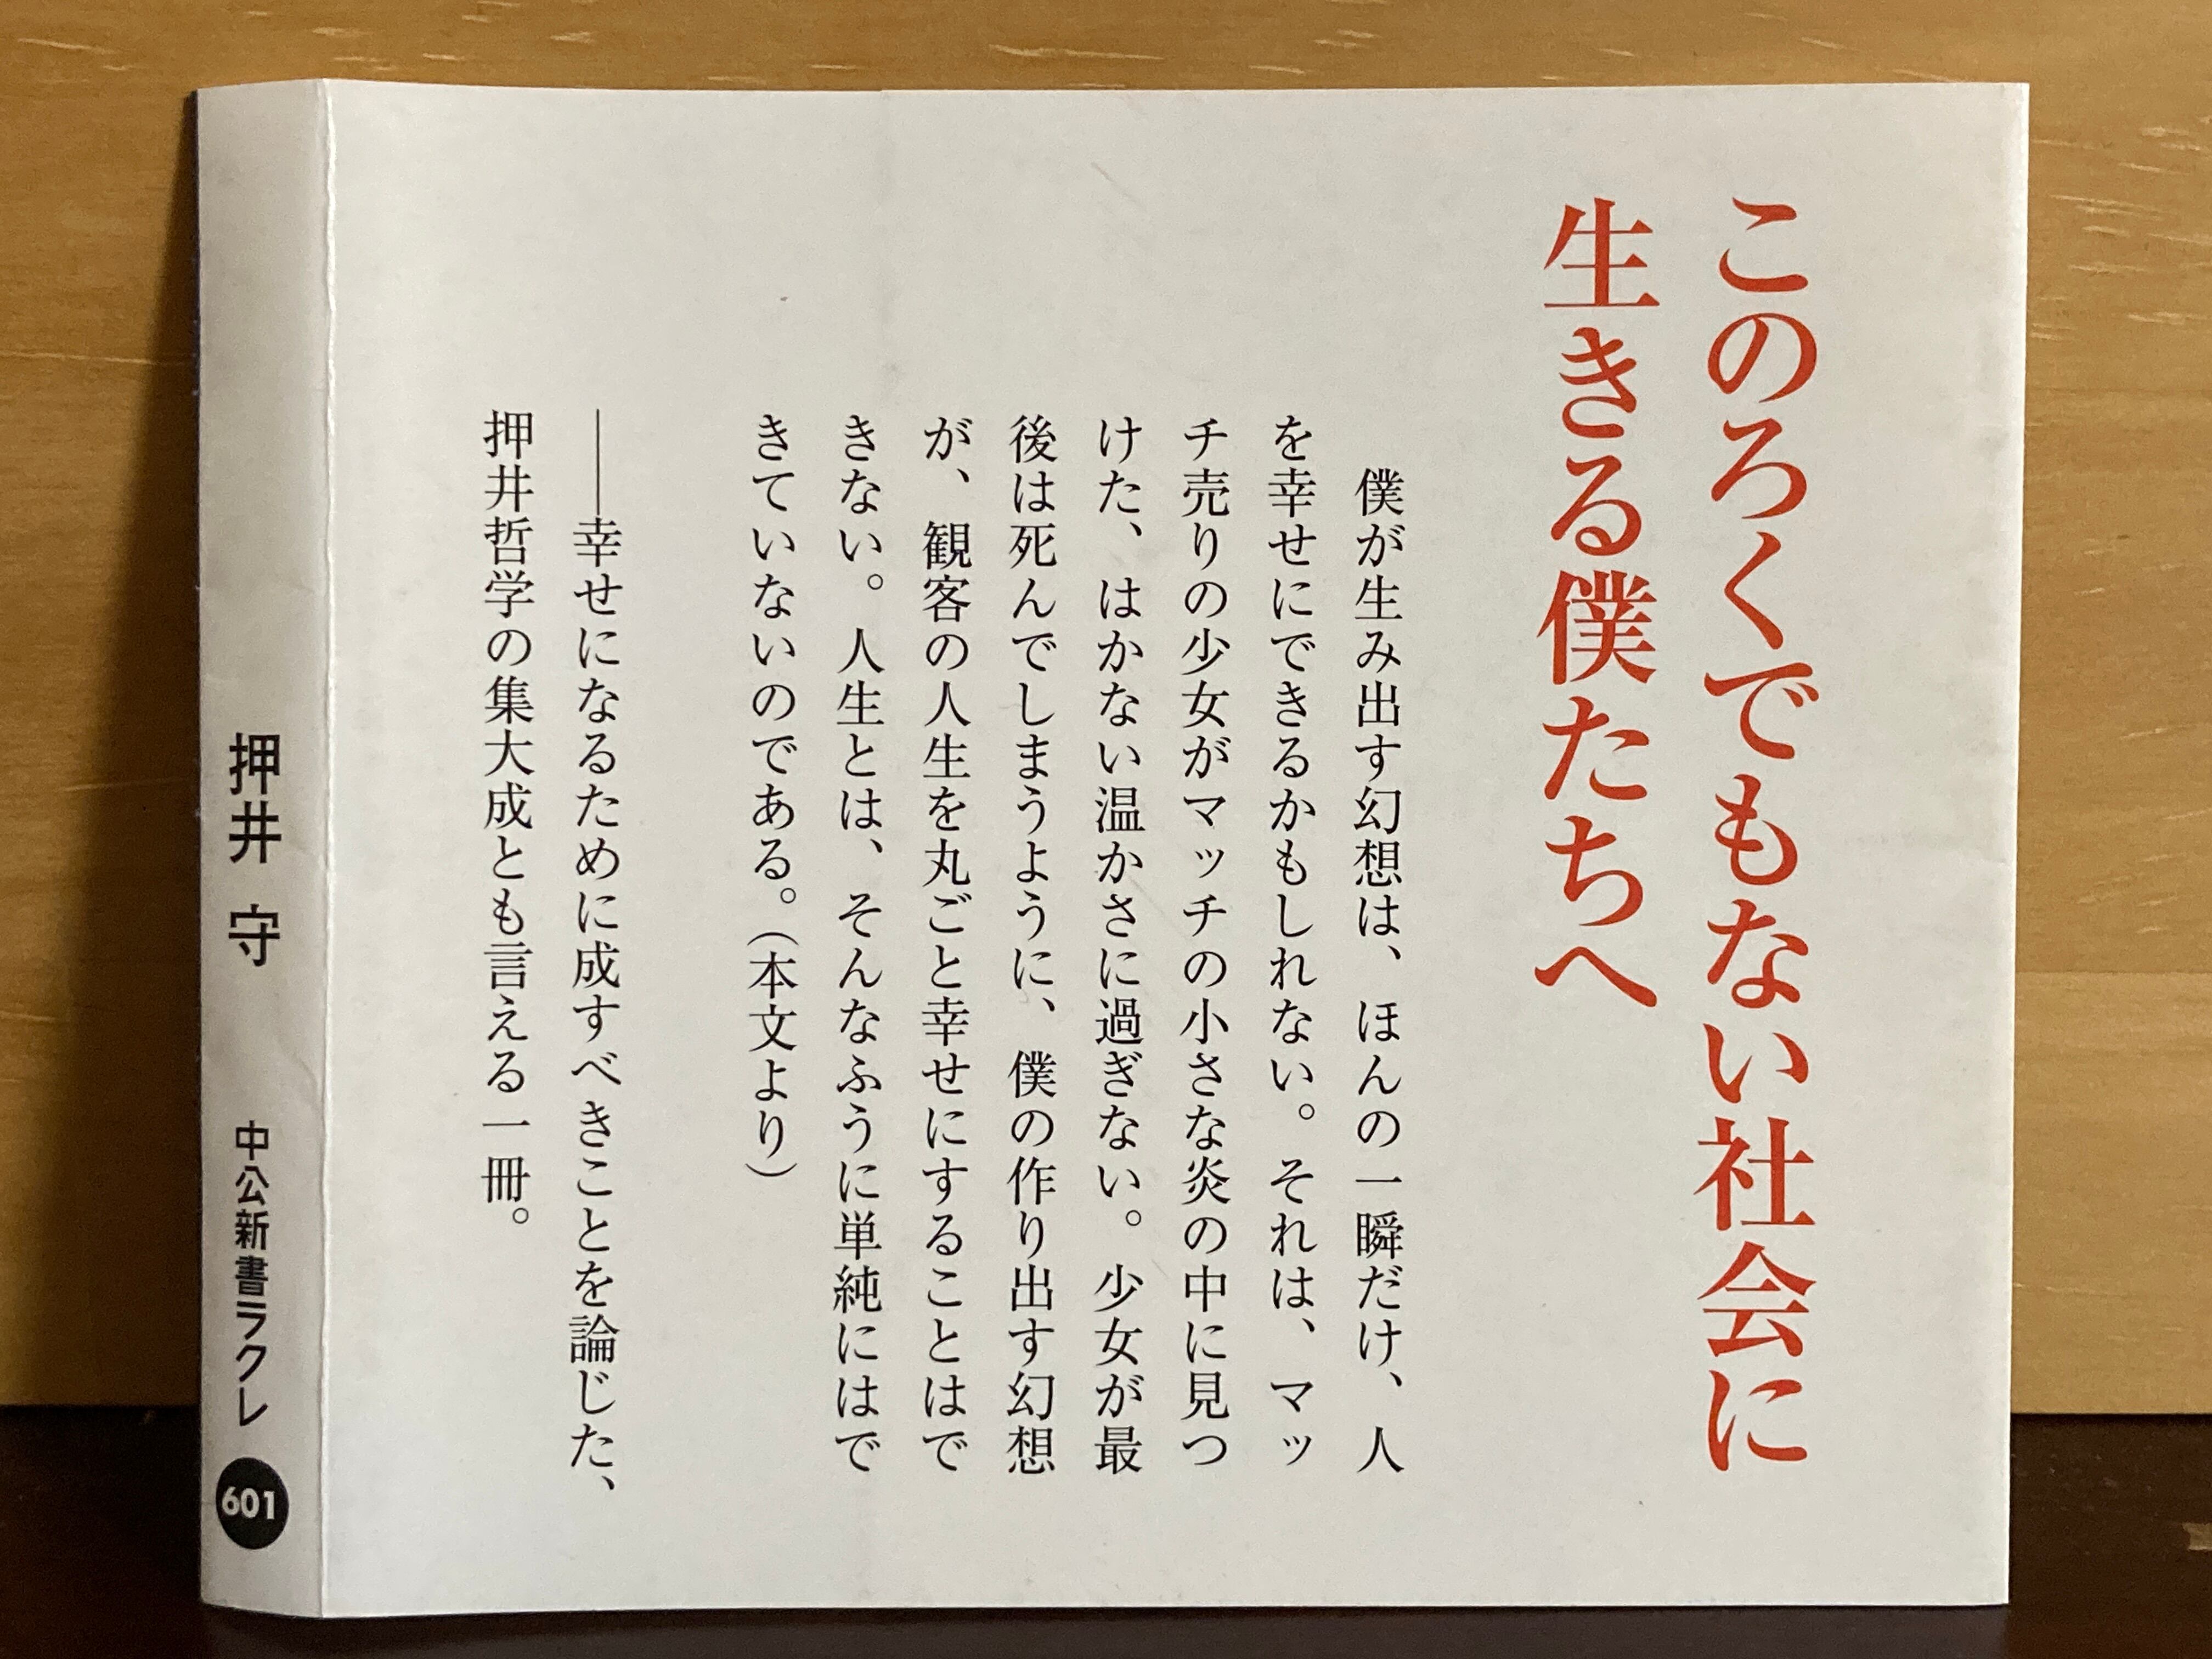 このろくでもない社会に
生きる僕たちへ
僕が生み出す幻想は、ほんの一瞬だけ、人
を幸せにできるかもしれない。それは、マッ
チ売りの少女がマッチの小さな炎の中に見つ
けた、はかない温かさに過ぎない。少女が最
後は死んでしまうように、僕の作り出す幻想
が、観客の人生を丸ごと幸せにすることはで
きない。人生とは、そんなふうに単純にはで
きていないのである。（本文より）
――幸せになるために成すべきことを論じた、
押井哲学の集大成とも言える一冊。
押井 守
中公新書ラクレ
601